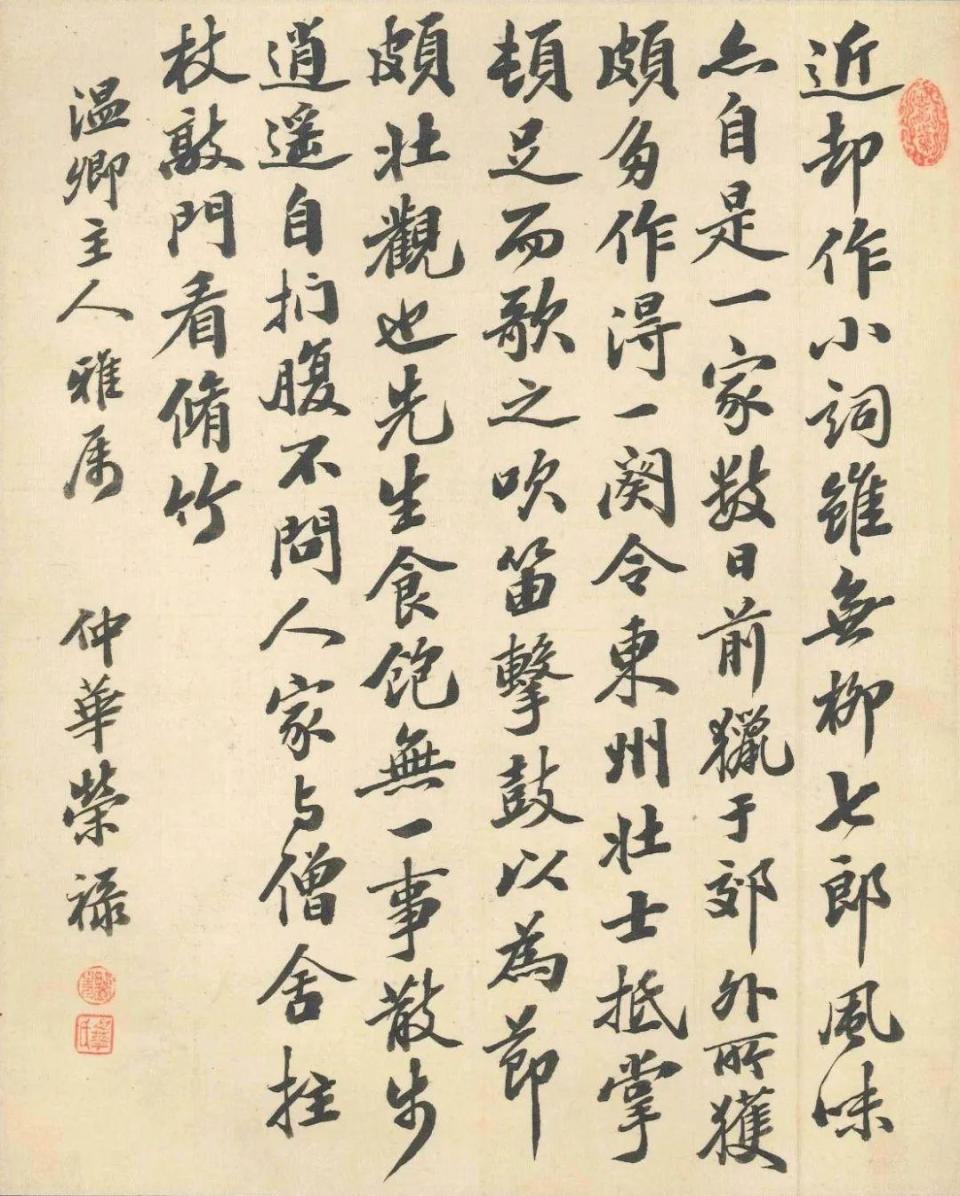 近却作小詞雖無柳七郎風味
亦自是一家數日前獵于郊外所獲
頗多作得一闋令東州壯士抵掌
頓足而歌之吹笛擊鼓以為節
頗壯觀也先生食飽無一事散步
逍遥自捫腹不問人家与僧舍拄
杖敲門看脩竹
温卿主人雅属
仲華榮禄